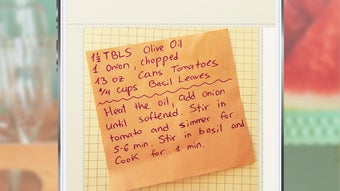 1½ TBLS Olive Oil
1 Onion, chopped
13 oz Cans Tomatoes
1/4 cups Basil Leaves
Heat the oil, add onion
until softened. Stir in
tomato and simmer for
5-6 min. Stir in basil and
Cook for 1 min.